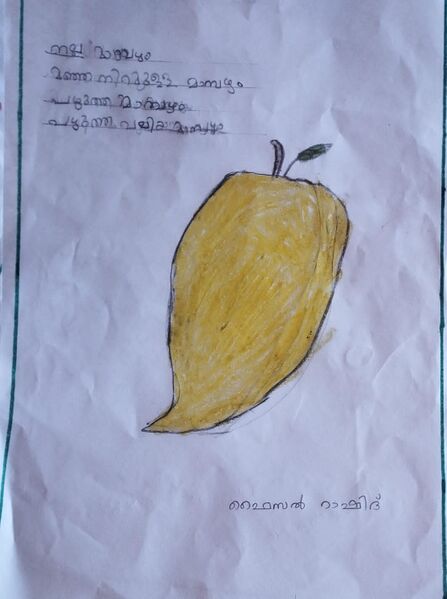 നല്ല മാമ്പഴം
മഞ്ഞ നിറമുള്ള മാമ്പഴം
പഴുത്ത മാമ്പഴം
പഴുത്ത വലിയ മാമ്പഴം
ഫൈസൽ റാഷിദ്